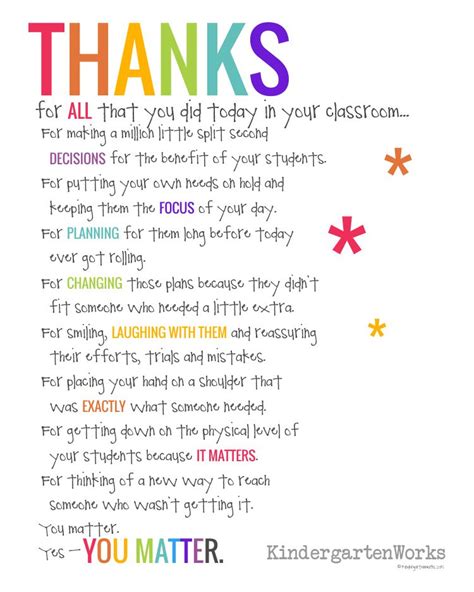 THANKS
for ALL that you did today in your classroom...
For making a million little split second
DECISIONS for the benefit of your students.
For putting your own needs on hold and
keeping them the FOCUS of your day.
For PLANNING for them long before today
ever got rolling.
For CHANGING those plans because they didn't
fit someone who needed a little extra.
For smiling, LAUGHING WITH THEM and reassuring
their efforts, trials and mistakes.
For placing your hand on a shoulder that
was EXACTLY what someone needed.
For getting down on the physical level of
your students because IT MATTERS.
For thinking of a new way to reach
someone who wasn't getting it.
You matter.
Yes – YOU MATTER.
KindergartenWorks